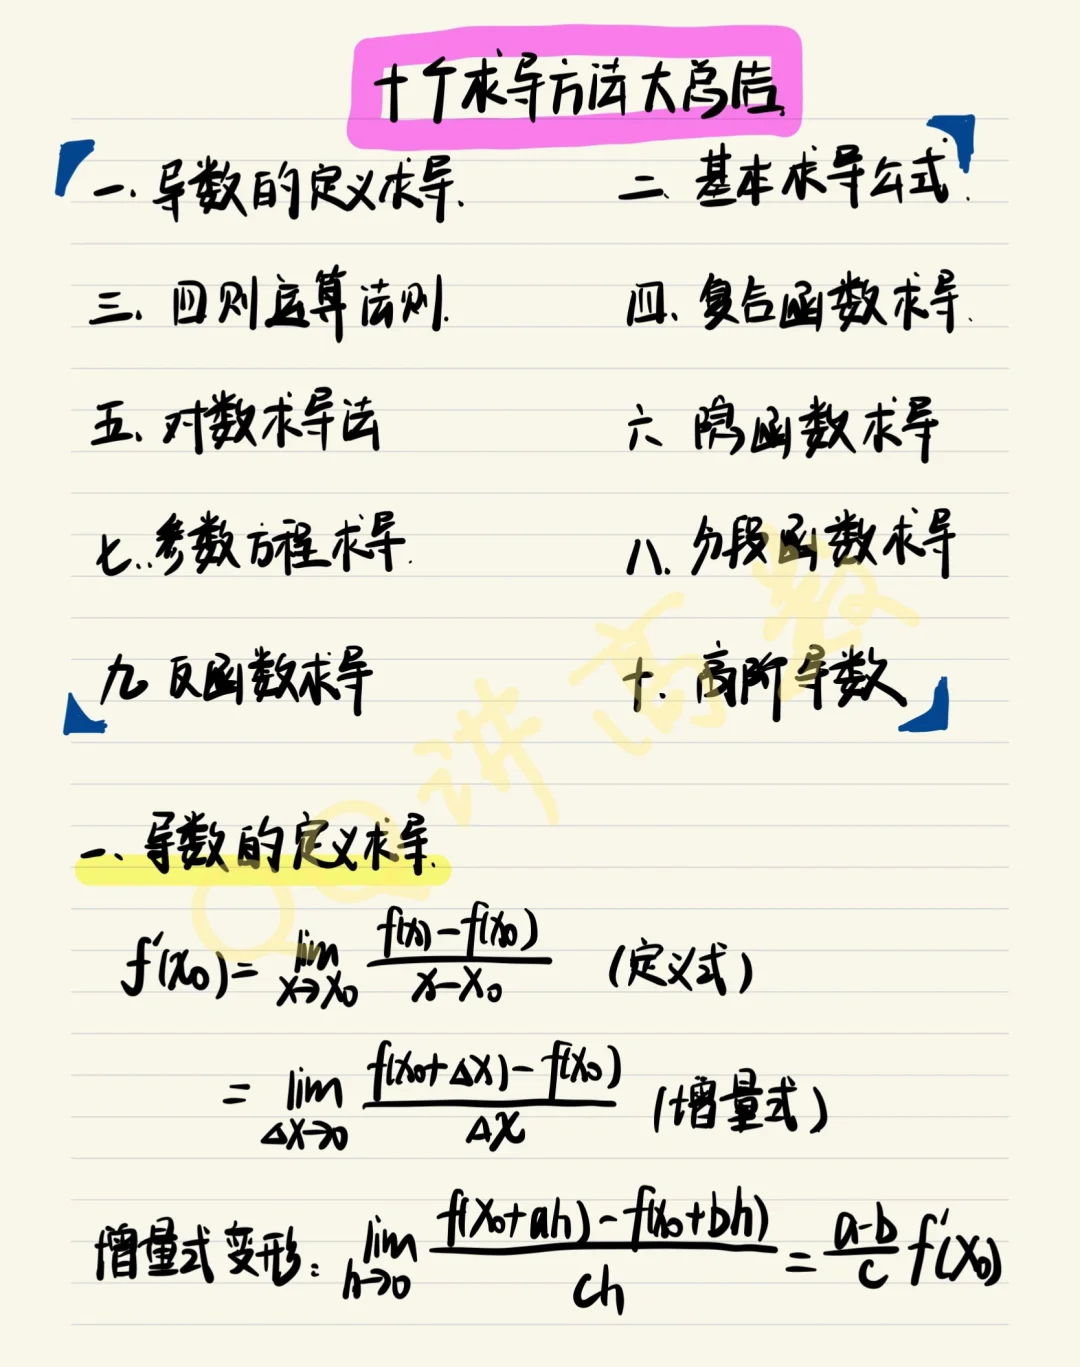 十个求导方法大总结
一、导数的定义求导.
二、基本求导公式.
三、四则运算法则.
四、复合函数求导.
五、对数求导法
六、隐函数求导
七、参数方程求导.
八、分段函数求导
九、反函数求导
十、高阶导数
QQ讲高数
一、导数的定义求导.
f'(x₀) = lim_{x→x₀} (f(x) - f(x₀)) / (x - x₀) (定义式)
= lim_{Δx→0} (f(x₀+Δx) - f(x₀)) / Δx (增量式)
增量式变形: lim_{h→0} (f(x₀+ah) - f(x₀+bh)) / ch = (a-b)/c f'(x₀)